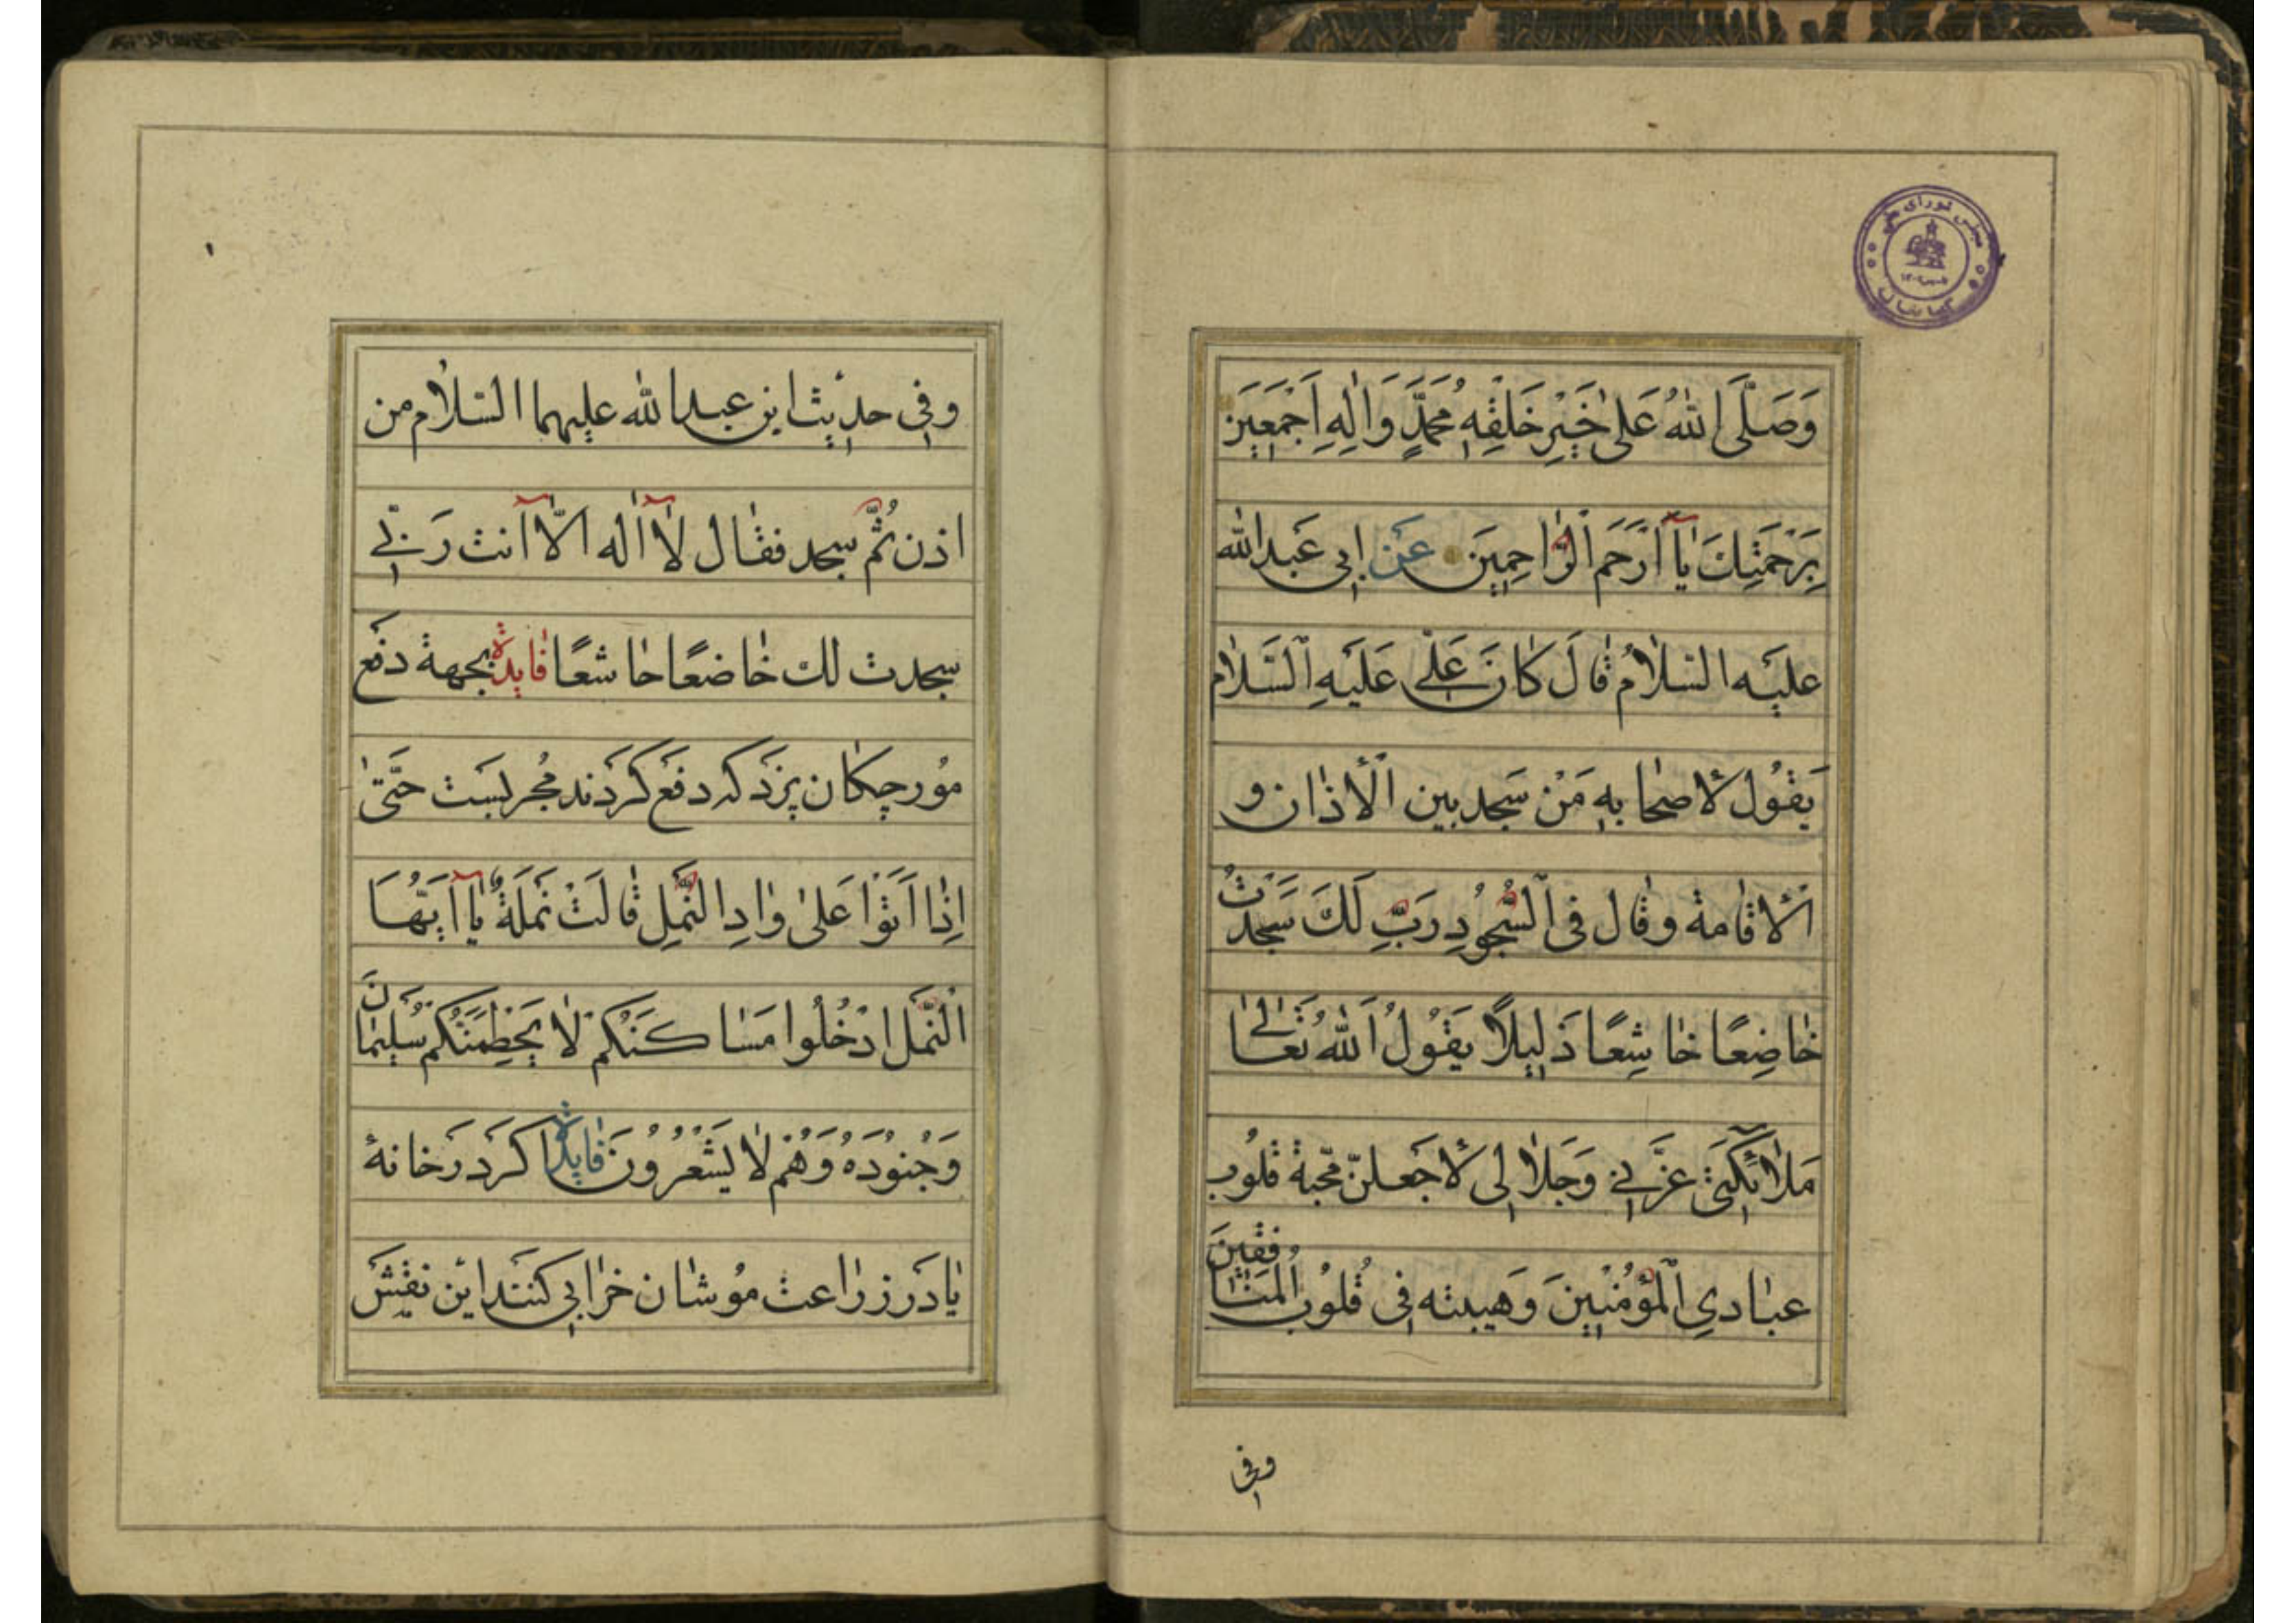 مجلس شورای ملی
کتابخانه
وَصَلَّی اللهُ عَلیٰ خَیْرِ خَلْقِهِ مُحَمَّدٍ وَاٰلِهِ اَجْمَعِیَن
بِرَحْمَتِكَ یٰآ اَرْحَمَ الرّٰاحِمِیَن عَن ابی عَبدالله
علیَه السّلاٰمُ قٰالَ کٰانَ عَلّی عَلَیَهِ اَلسَّلٰام
یَقُول لأصحٰابِه مَنْ سَجد بین اَلأذٰان و
اَلأقٰامة وقٰال فی اَلسُّجُودِ رَبِّ لَكَ سَجَدْتُ
خٰاضِعًا خٰاشِعًا ذَلِیلًا یَقُولُ اَللهُ تَعٰالیٰ
مَلاٰئِکَتی عزَّتی وَجَلاٰلی لأجَعلنّ مّحبة قلُوب
عبٰادیِ اَلْمؤُمنُیِنَ وَهَیبته فِی قُلوُب المنٰافقینَ
وفی
وفِی حدیث ابن عبدالله علیهما السّلاٰم من
اذن ثُمّ سجد فقٰال لآٰ اله الّآ اَنت رَبّی
سجدت لك خٰاضعًا خٰاشعًا فٰایدهٔ بجهة دفَع
موُرچکٰان پزدَ که دفعَ کرَدند مُجربسَت حتَّیٰ
اِذٰا اَتَوْا عَلیٰ وٰادِ النَّمْلِ قٰالَتْ نَملَةٌ یٰآ اَیّهُا
اَلنَّملُ ادْخُلُوا مَسٰاکنَکُم لاٰ یَحْطِمَنَّکُم سُلیمٰانَ
وَجُنوُدَهُ وَهُم لاٰ یَشْعُرُونَ فٰایدهٔ اکر دَرخانهٔ
یٰا دَر زرٰاعت موُشٰان خرٰابی کنَند ایْن نقْش